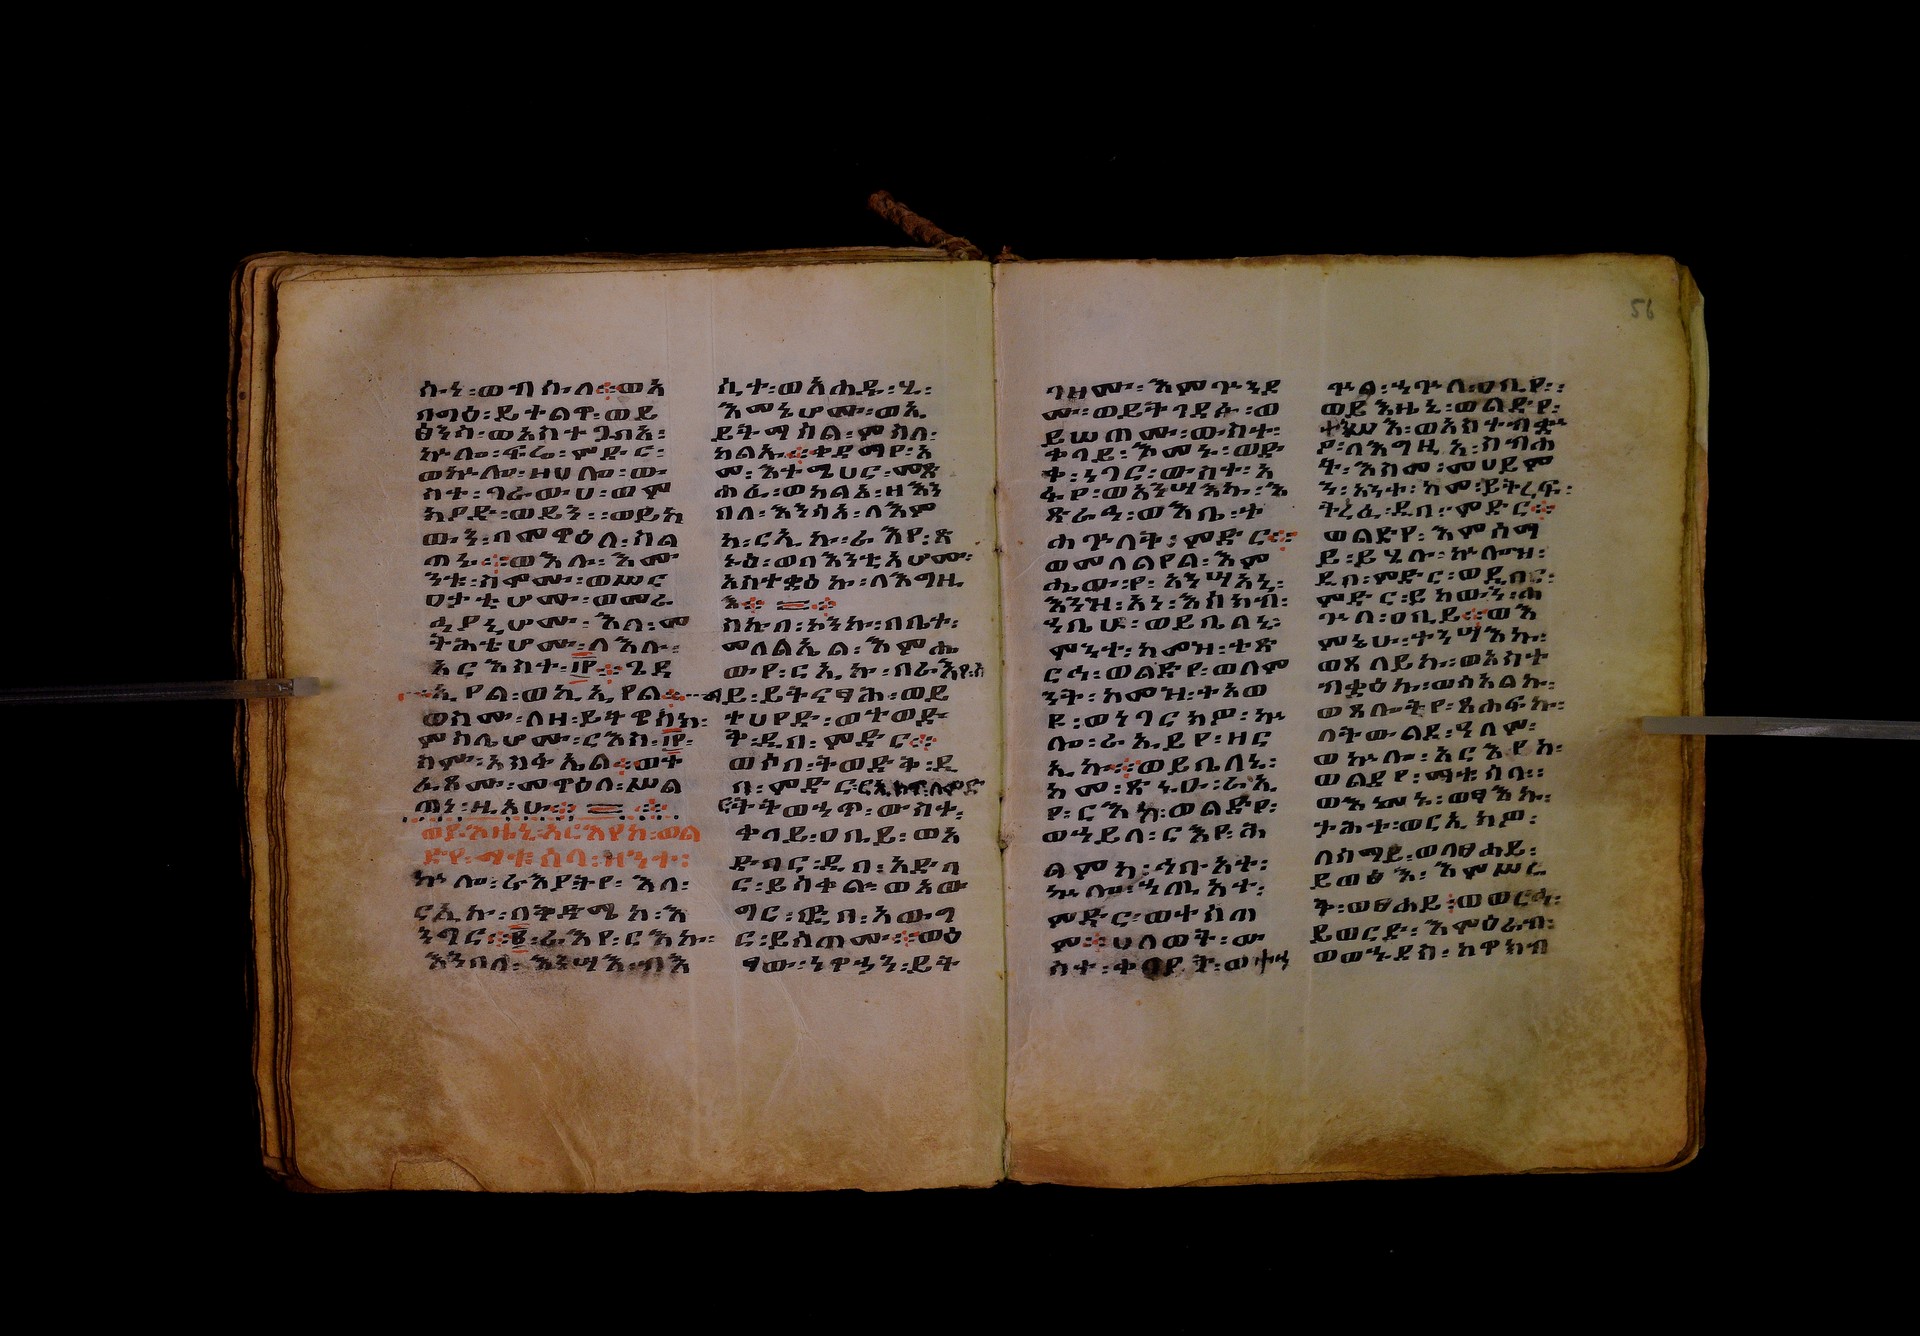 ሱኒ፡ወብሱል፨ወአ
በግዕ፡ይተልዋ፡ወይ
ፅንሳ፡ወአስተጋብአ፡
ኵሎ፡ፍሬ፡ምድር፡
ወኵሎ፡ዘሀሎ፡ው
ስተ፡ገራውህ፡ወም
ጠኑ፨ወእሉ፡እሙ
ንቱ፡ስሞሙ፡ወሥር
ዐታቲሆሙ፡ወመራ
ትሕቲሆሙ፡ለእሉ፡
ወስሙ፡ለዘ፡ይትዋሰክ፡
ስም፡አስፋኤል፨ወተ
ፈጸሙ፡መዋዕለ፡ሥል
ጣኑ፡ዚአሁ፨
ወይእዜኒ፡አርእየከ፡ወል
ድየ፡ማቱሳላ፡ዝንቱ፡
ኵሎ፡ራእያትየ፡እለ፡
ርኢኩ፡በቅድሜከ፡እ
ንግር፨፪፡ራእየ፡ርእኩ፡
እንበለ፡እንሣእ፡ብእ
ሲተ፡ወአሐዱ፡ሂ፡
እመኔሆሙ፡ወኢ
ይትማሰል፡ምስለ፡
ካልኡ፨ቀዳማየ፡አ
መ፡እትሜሀር፡መጽ
ሐፈ፡ወካልእ፡ዘእን
በለ፡እንሳእ፡ለእም
ከ፡ርኢኩ፡ራእየ፡ጽ
ኑዕ፡ወበእንቲአሆሙ፡
አስተቋዕኩ፡ለእግዚ
እ፨
ስኩበ፡ኮንኩ፡በቤተ፡
መላልኤል፡እምሔ
ውየ፡ርኢኩ፡በራእየ፡ሰ
ማይ፡ይትናፃሕ፡ወይ
ተሀየድ፡ወተወድ
ቅ፡ዲበ፡ምድር፨
ወሶበ፡ትወድቅ፡ዲ
በ፡ምድር፡ርኢክዋ፡ለምድ
ርትትወኀጥ፡ውስተ፡
ቀላይ፡ዐቢይ፡ወአ
ድባር፡ዲበ፡አድባ
ር፡ይሰቀል፡ወአው
ግር፡ዲበ፡አውግ
ር፡ይሰጠሙ፨ወዕ
ፀው፡ነዋኃን፡ይት
ገዘሙ፡እምጕንደ
ሙ፡ወይትገደፉ፡ወ
ይሠጠሙ፡ውስተ፡
ቀላይ፡እመኑ፡ወድ
ቀ፡ነገር፡ውስተ፡አ
ፉየ፡ወአንሣእኩ፡እ
ጽራኅ፡ወእቤ፡ተ
ሐጕለት፡ምድር፨
ወመላልየል፡እም
ሔውየ፡አንሥአኒ፡
እንዝ፡አነ፡እሰክብ፡
ኀቤሁ፡ወይቤለኒ፡
ምንተ፡ከመዝ፡ተጽ
ርኅ፡ወልድየ፡ወለም
ንት፡ከመዝ፡ተአወ
ዩ፡ወነገርክዎ፡ኵ
ሎ፡ራእይየ፡ዘር
ኢኩ፨ወይቤለኒ፡
ከመ፡ጽኑዑ፡ራኢ
የ፡ርእከ፡ወልድየ፡
ወኀይለ፡ርእየ፡ሕ
ልምከ፡ኅቡአተ፡
ኵሎ፡ኀጢአተ፡
ምድር፡ወተሰጠ
ም፨ሀለወት፡ው
ስተ፡ቀላይት፡ወተኀ
ጕል፡ኀጕለ፡ዐቢየ፡
ወይእዜኒ፡ወልድየ፡
ተንሥእ፡ወአስተብቋዕ
ዖ፡ለእግዚኢ፡ስብሐ
ት፡እስመ፡መሀይም
ን፡አንተ፡ከመ፡ይትረፍ፡
ትረፊ፡ዲበ፡ምድር፨
ወልድየ፡እምሰማ
ይ፡ይሄሉ፡ኵሎዝ፡
ዲበ፡ምድር፡ወዲበር፡
ምድር፡ይከውን፡ሐ
ጕለ፡ዐቢይ፨ወእ
ምኔሁ፡ተንሣእኩ፡
ወጸለይኩ፡ወአስተ
ብቋዕኩ፡ወሰአልኩ፡
ወጸሎትየ፡ጸሐፍኩ፡
ለትውልደ፡ዓለም፡
ወኵሎ፡አርእየከ፡
ወልድየ፡ማቱሳላ፡
ወእመኑ፡ወፃእኩ፡
ታሕተ፡ወርኢክዎ፡
ለሰማይ፡ወለፀሐይ፡
ይወፅእ፡እምሥረ
ቅ፡ወፀሐይ፡ወወርኅ፡
ይወርድ፡እምዕራብ፡
ወወኁደከ፡ከዋክብ